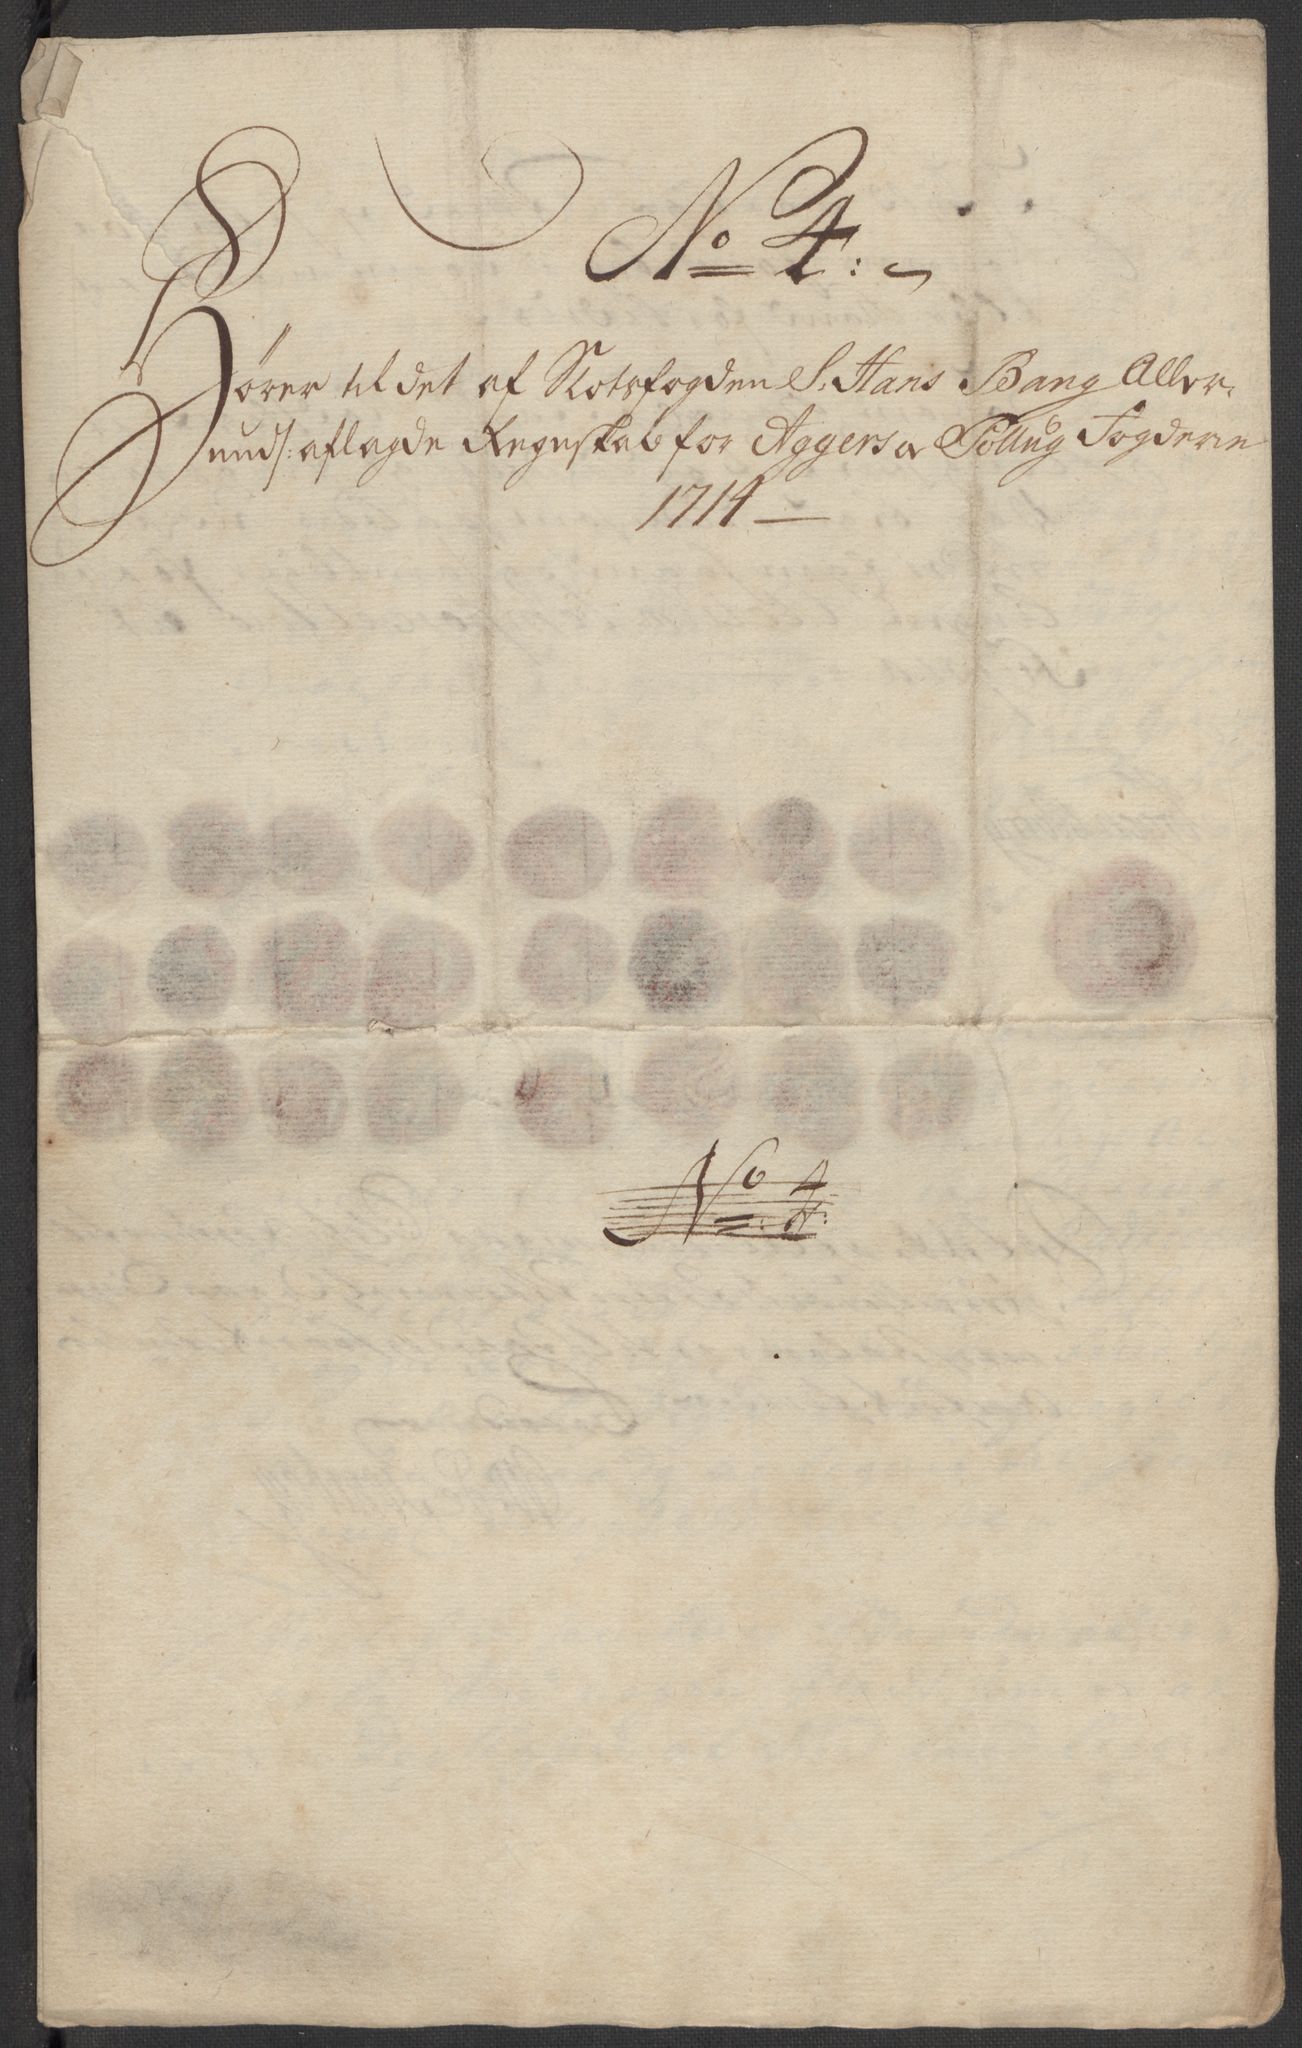 No 4:
Hører til det af Slotsfogden S. Hans Bang Aller-
unds: aflagde Regnskab for Aggers og Follug Fogderie
1714
No 4: